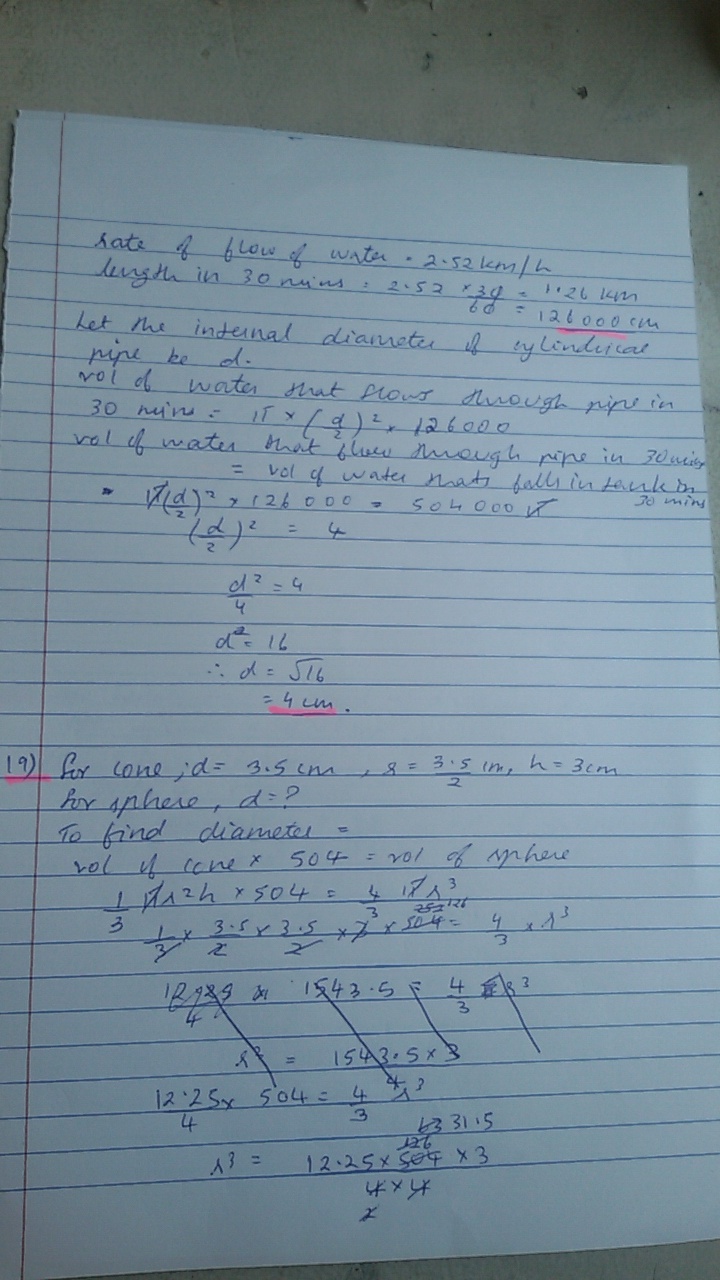 rate of flow of water = 2.52 km/h
length in 30 mins = 2.52 × 30/60 = 1.26 km
= 126000 cm
Let the internal diameter of cylindrical
pipe be d.
vol of water that flows through pipe in
30 mins = π × (d/2)² × 126000
vol of water that flow through pipe in 30 mins
= vol of water thats falls in tank in
30 mins
= π(d/2)² × 126000 = 504000 π
(d/2)² = 4
d²/4 = 4
d² = 16
∴ d = √16
= 4 cm.
19) for cone ; d = 3.5 cm , r = 3.5/2 cm, h = 3cm
for sphere, d = ?
To find diameter =
vol of cone × 504 = vol of sphere
1/3 πr²h × 504 = 4/3 πr³
252 126
1/3 × 3.5/2 × 3.5/2 × 3 × 504 = 4/3 × r³
1543.5 = 4/3 r³
r³ = 1543.5 × 3
4
12.25/4 × 504 = 4/3 r³
63 31.5
126
r³ = 12.25 × 504 × 3
4 × 4
2